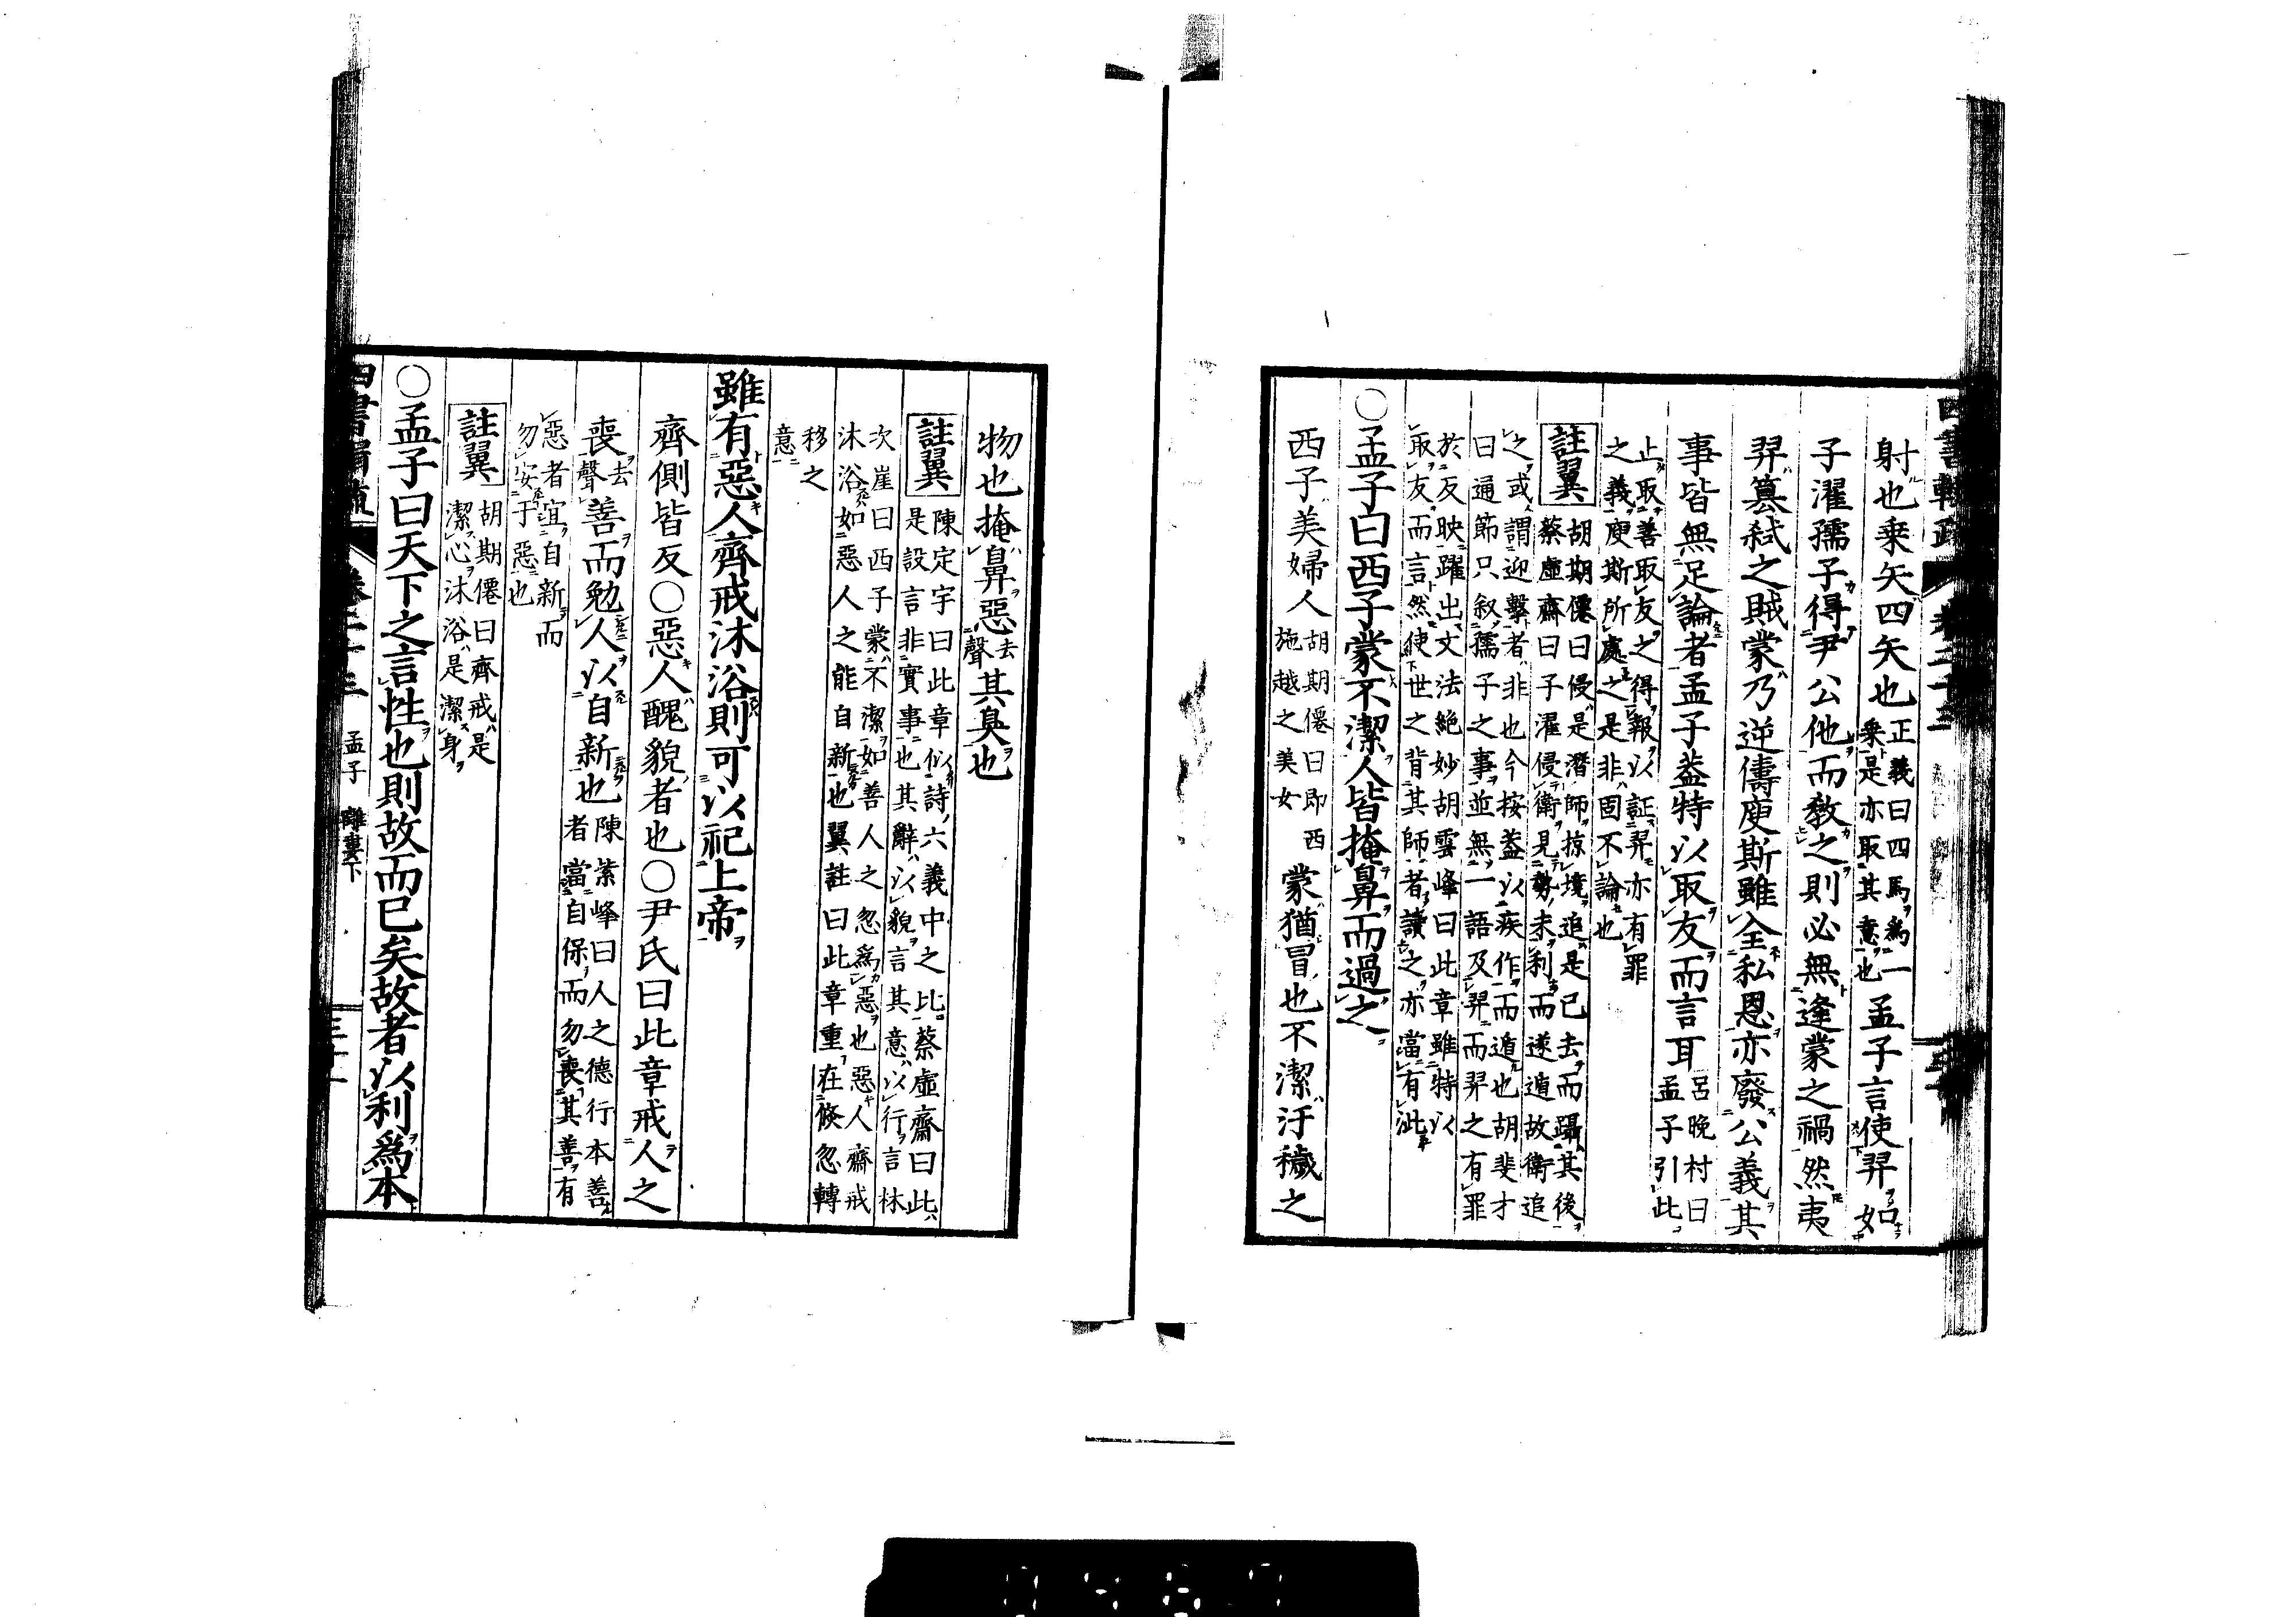 射也乗矢四矢也
正義曰四馬爲一
乗是亦取其意也
孟子言使羿如
子濯孺子得尹公他而教之則必無逢蒙之禍然夷
羿簒弑之賊蒙乃逆儔庾斯雖全私恩亦廢公義其
事皆無足論者孟子蓋特以取友而言耳
呂晩村曰
孟子引此
止取善取友之得報以証羿亦有罪
之義庾斯所處之是非固不論也
註翼
胡期僊曰侵是潛師掠境追是已去而躡其後
蔡虚齋曰子濯侵衛見勢未利而遂遁故衛追
之或謂迎擊者非也今按蓋以疾作而遁也胡斐才
曰通節只叙孺子之事並無一語及羿而羿之有罪
於反映躍出文法絶妙胡雲峰曰此章雖特以
取友而言然使下世之背其師者讀之亦當有泚
○孟子曰西子蒙不潔人皆掩鼻而過之
西子美婦人
胡期僊曰即西
施越之美女
蒙猶冒也不潔汙穢之
物也掩鼻惡
去
聲
其臭也
註翼
陳定宇曰此章似詩六義中之比蔡虚齋曰此
是設言非實事也其辭以貌言其意以行言林
次崖曰西子蒙不潔如善人之忽爲惡也惡人齋戒
沐浴如惡人之能自新也翼註曰此章重在倐忽轉
移之
意
雖有惡人齊戒沐浴則可以祀上帝
齊側皆反○惡人醜貌者也○尹氏曰此章戒人之
喪
去
聲
善而勉人以自新也
陳紫峰曰人之德行本善
者當自保而勿喪其善有
惡者宜自新而
勿安于惡也
註翼
胡期僊曰齊戒是
潔心沐浴是潔身
○孟子曰天下之言性也則故而已矣故者以利爲本
孟子 離婁下